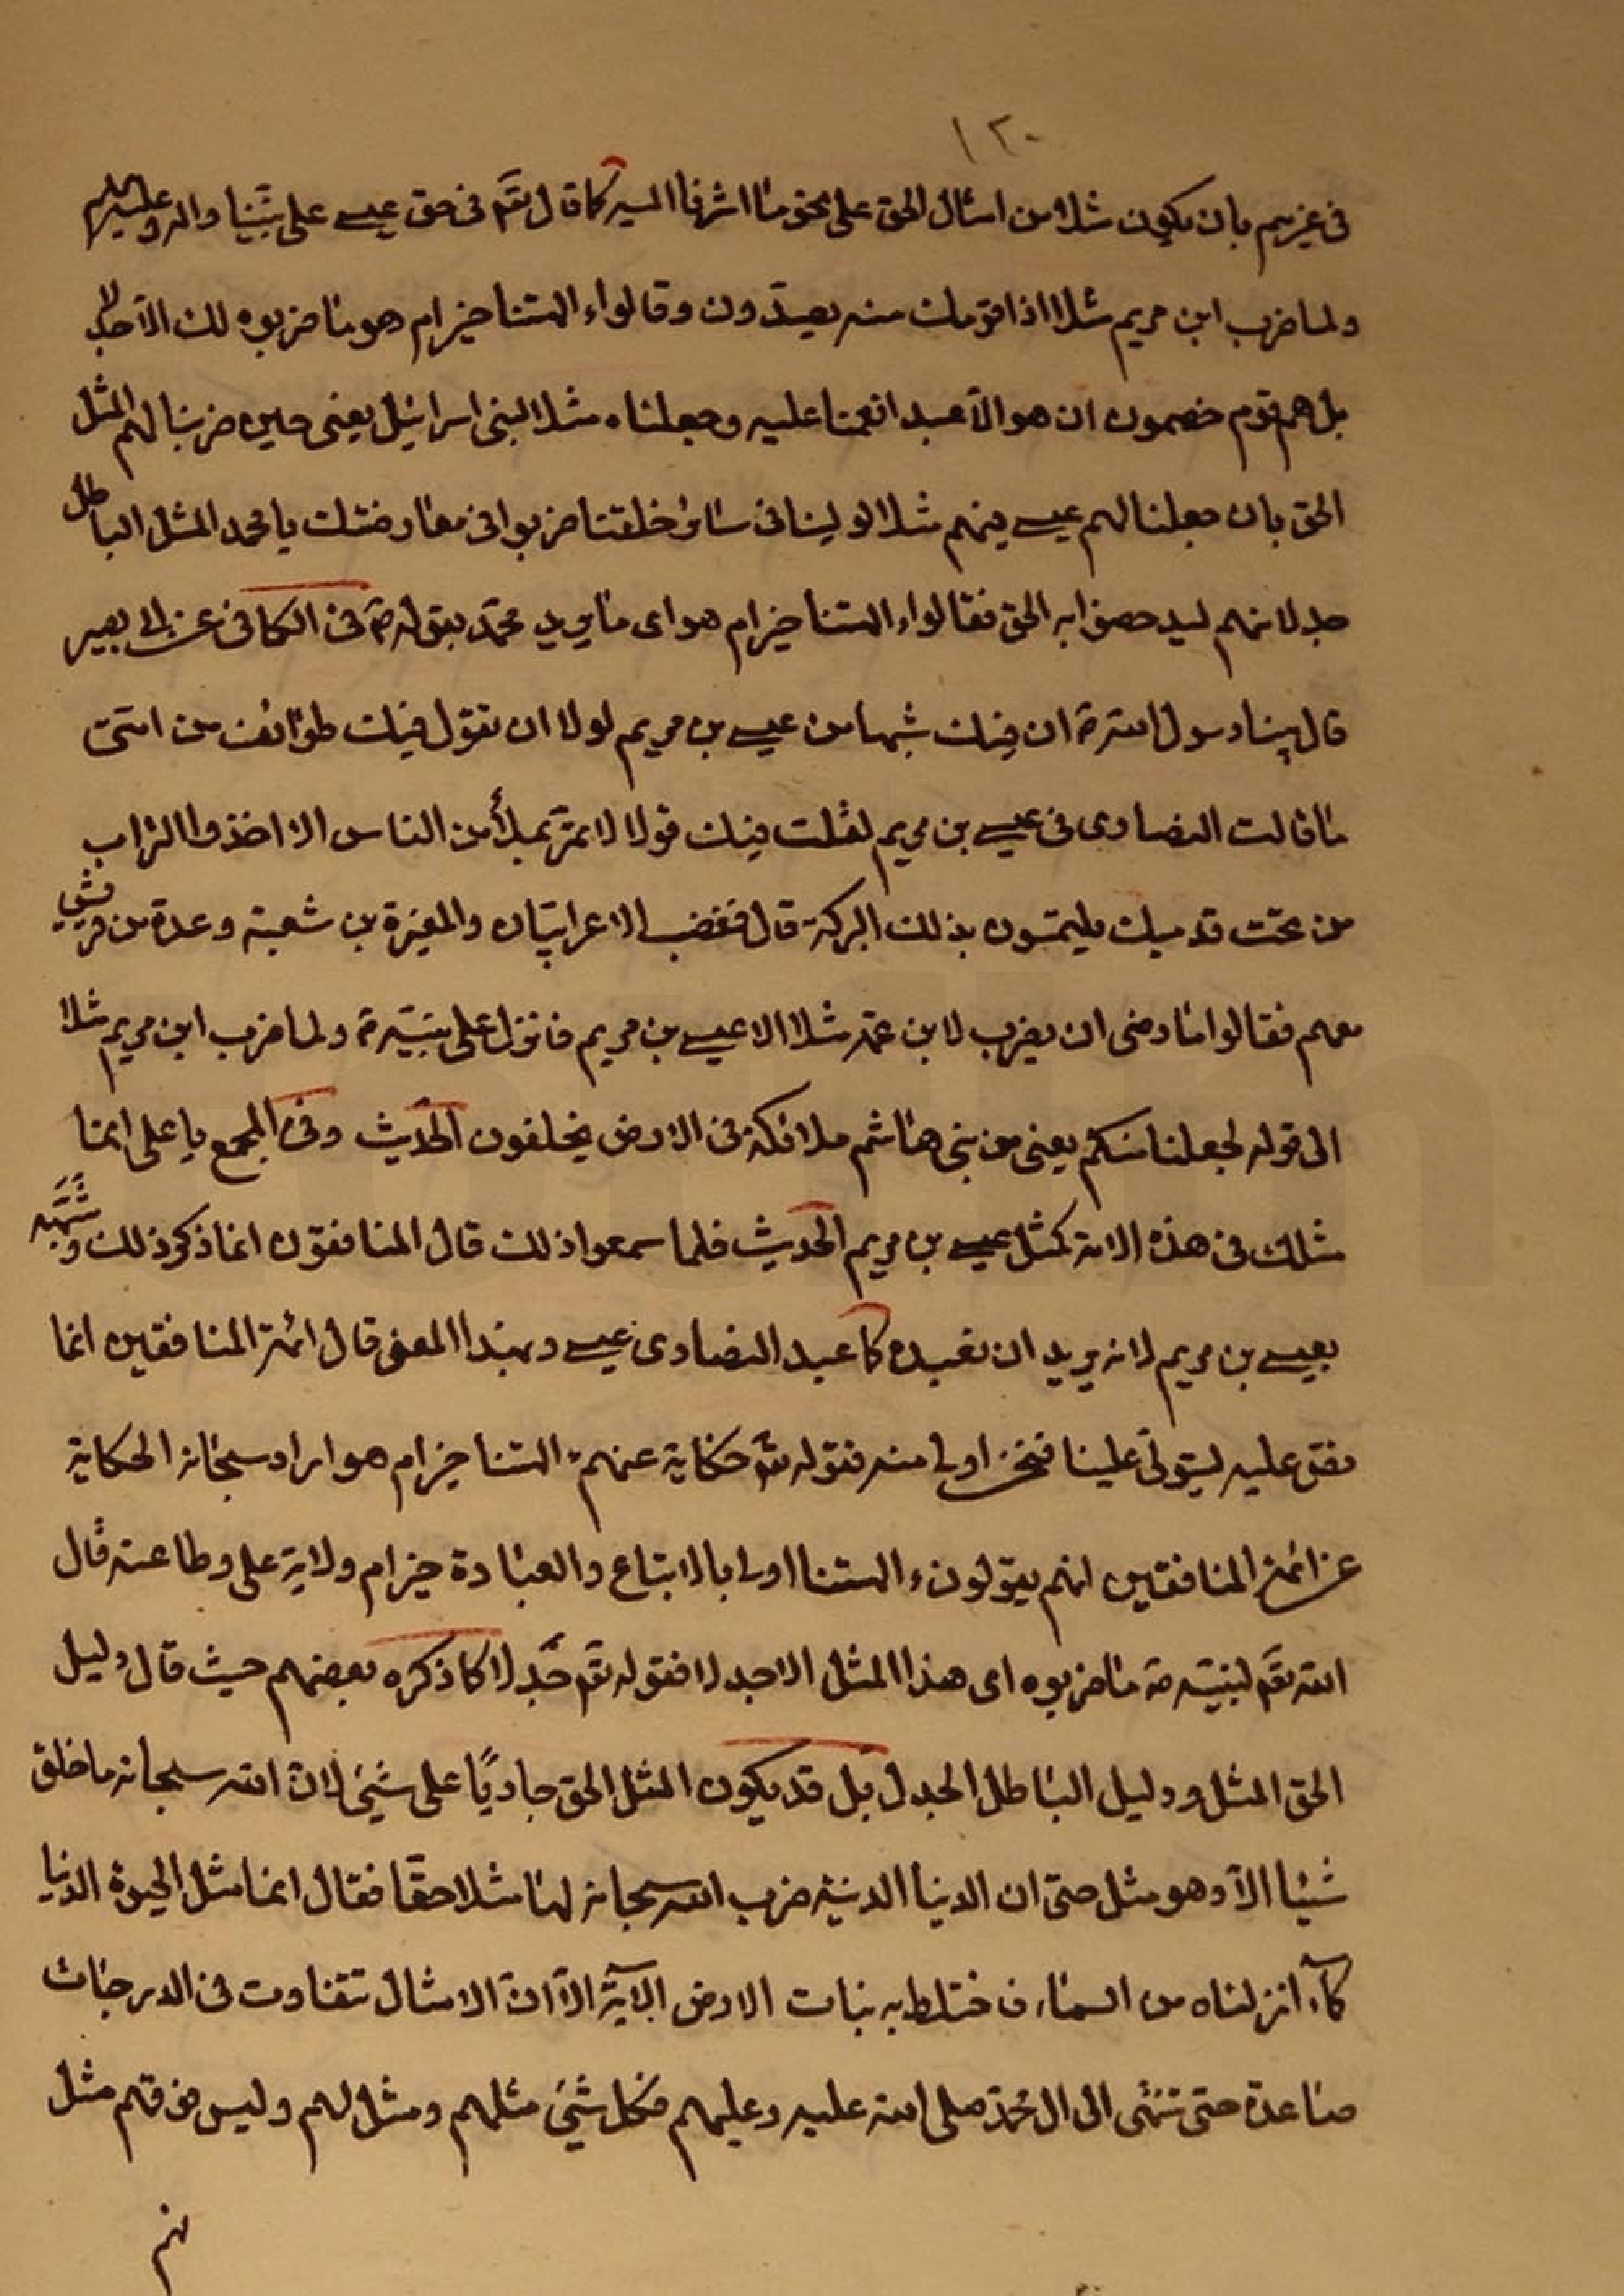 ١٣٠
فى غيرهم بان يكون مثلا من امثال الحق على نحو ما اشرنا اليه كما قال تعَ فى حق عيسى على نبيّنا واله وعليه السلم
ولما ضرب ابن مريم مثلا اذا قومك منه يصدّون وقالوا ءالهتنا خير ام هو ما ضربوه لك الّا جدلا
بل هم قوم خصمون ان هو الّا عبد انعمنا عليه وجعلناه مثلا لبنى اسرائيل يعنى حين ضربنا لهم المثل
الحق بان جعلنا لهم عيسى منهم مثلا لولينا فى سائر خلقنا ضربوا فى معارضتك يا محمد المثل الباطل
جدلا منهم ليدحضوا به الحق فقالوا ءالهتنا خير ام هو اى ما يريد محمّد بقوله صَ فى الكافى عن ابى بصير
قال بينا رسول الله صَ ان فيك شبها من عيسى بن مريم لولا ان تقول فيك طوائف من امتى
ما قالت النصارى فى عيسى بن مريم لقلت فيك قولا لا تمرّ بملأ من الناس الا اخذوا التراب
من تحت قدميك يلتمسون بذلك البركة قال فغضب الاعرابيّان والمغيرة بن شعبة وعدة من قريش
معهم فقالوا ما رضى ان يضرب لابن عمّه مثلا الا عيسى بن مريم فانزل على نبيّه صَ ولما ضرب ابن مريم مثلا
الى قوله لجعلنا منكم يعنى من بنى هاشم ملائكة فى الارض يخلفون الحديث وفى المجمع يا على انما
مثلك فى هذه الامة كمثل عيسى بن مريم الحديث فلما سمعوا ذلك قال المنافقون انما ذكر ذلك وشبّهه
بعيسى بن مريم لانه يريد ان نعبده كما عبد النصارى عيسى وبهذا المعنى قال ائمة المنافقين انما
نص عليه ليتولّى علينا فنحن اولى منه فقوله تعَ حكاية عنهم ءالهتنا خير ام هو اراد سبحانه الحكاية
عن ائمة المنافقين انهم يقولون ءالهتنا اولى بالاتباع والعبادة خير ام ولاية على وطاعته قال
الله تعَ لنبيّه صَ ما ضربوه اى هذا المثل الا جدلا فقوله تعَ جَدلا كما ذكره بعضهم حيث قال دليل
الحق المثل ودليل الباطل الجدل بل قد يكون المثل الحق جاريًا على شىء لانّ الله سبحانه ما خلق
شيئا الّا وهو مثل حتى ان الدنيا الدنية ضرب الله سبحانه لها مثلا حقّا فقال انما مثل الحيوة الدنيا
كماء انزلناه من السماء فختلط به نبات الارض الاية الّا انّ الامثال تتفاوت فى الدرجات
صاعدة حتى تنتهى الى ال محمّد صلى الله عليه وعليهم فكل شىء مثلهم ومثل لهم وليس فوقهم مثل
لهم